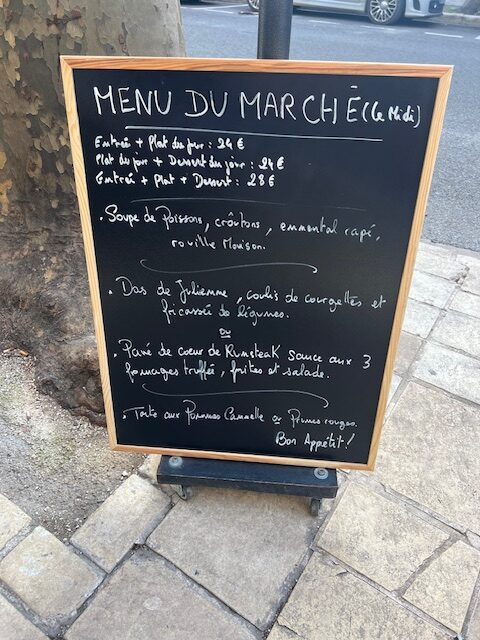 MENU DU MARCHÉ (Le Midi)
Entrée + Plat du jour : 24 €
Plat du jour + Dessert du jour : 24 €
Entrée + Plat + Dessert : 28 €
. Soupe de Poissons, croûtons, emmental rapé,
rouille Maison.
. Dos de Julienne, coulis de courgettes et
fricassée de légumes.
ou
. Pavé de coeur de Rumsteak sauce aux 3
fromages truffé, frites et salade.
. Tarte aux Pommes Cannelle ou Prunes rouges.
Bon Appétit !